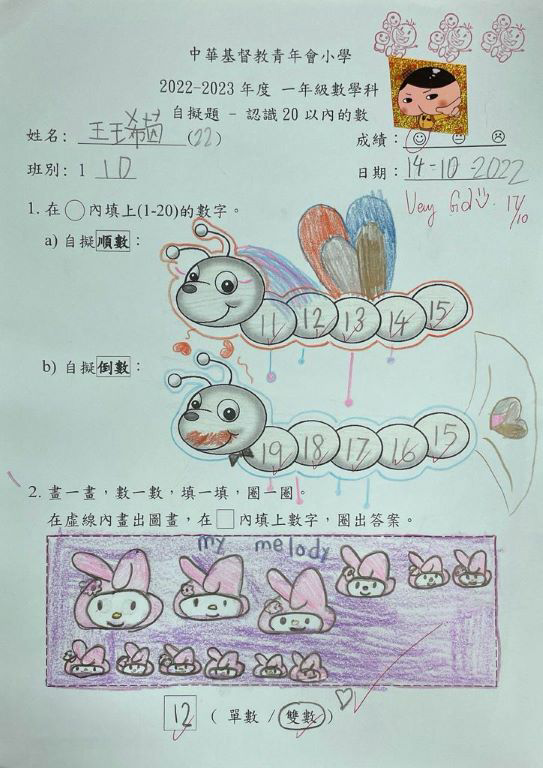 中華基督教青年會小學
2022-2023 年度 一年級數學科
自擬題 - 認識 20 以內的數
姓名: 王玨希茵 (22) 成績:
班別: 1 1D 日期: 14-10-2022
Very Good 17/10
1. 在○內填上(1-20)的數字。
a) 自擬順數:
11 12 13 14 15
b) 自擬倒數:
19 18 17 16 15
2. 畫一畫,數一數,填一填,圈一圈。
在虛線內畫出圖畫,在□內填上數字,圈出答案。
my melody
12 ( 單數 / 雙數 )